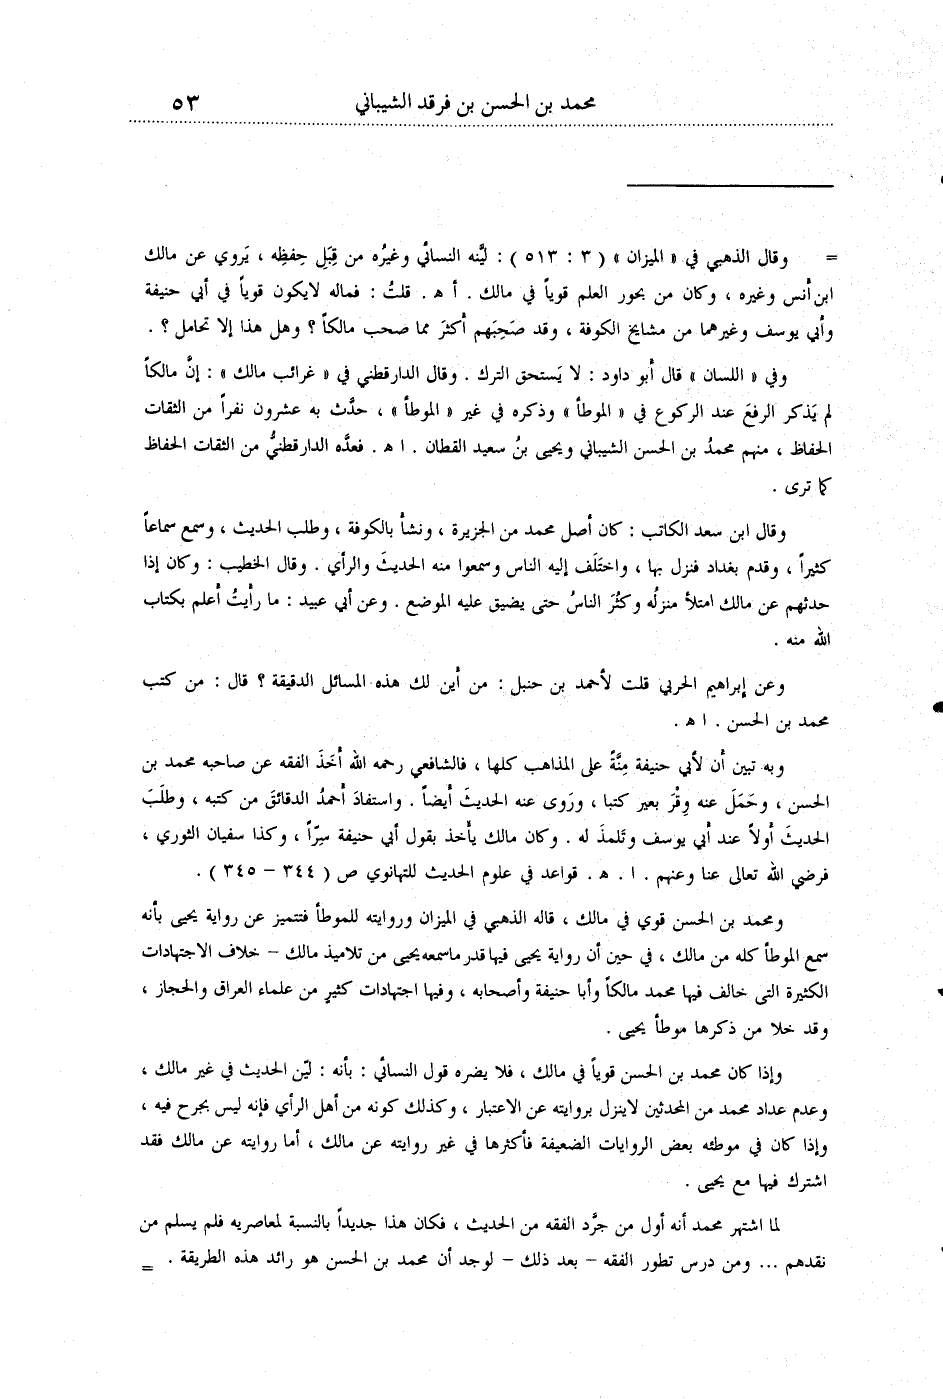 محمد بن الحسن بن فرقد الشيباني ٥٣
= وقال الذهبي في « الميزان » ( ٣ : ٥١٣ ) : ليَّنه النسائي وغيرُه من قِبَلِ حِفظِه ، يَروي عن مالك
ابن أنس وغيره ، وكان من بحور العلم قوياً في مالك . أ هـ . قلتُ : فماله لايكون قوياً في أبي حنيفة
وأبي يوسف وغيرهما من مشايخ الكوفة ، وقد صَحِبَهم أكثرَ مما صحب مالكاً ؟ وهل هذا إلا تحامل ؟ .
وفي « اللسان » قال أبو داود : لا يَستحق الترك . وقال الدارقطني في « غرائب مالك » : إنَّ مالكاً
لم يَذكر الرفعَ عند الركوع في « الموطأ » وذكره في غير « الموطأ » ، حدَّث به عشرون نفراً من الثقات
الحفاظ ، منهم محمدُ بن الحسن الشيباني ويحيى بنُ سعيد القطان . ا هـ . فعدَّه الدارقطنيُّ من الثقات الحفاظ
كما ترى .
وقال ابن سعد الكاتب : كان أصل محمد من الجزيرة ، ونشأ بالكوفة ، وطلب الحديث ، وسمع سماعاً
كثيراً ، وقدم بغداد فنزل بها ، واختَلَف إليه الناس وسمعوا منه الحديثَ والرأي . وقال الخطيب : وكان إذا
حدثهم عن مالك امتلأ منزلُه وكثُرَ الناسُ حتى يضيق عليه الموضع . وعن أبي عبيد : ما رأيتُ أعلم بكتاب
الله منه .
وعن إبراهيم الحربي قلت لأحمد بن حنبل : من أين لك هذه المسائل الدقيقة ؟ قال : من كتب
محمد بن الحسن . ا هـ .
وبه تبين أن لأبي حنيفة مِنَّةً على المذاهب كلها ، فالشافعي رحمه الله أخَذَ الفقه عن صاحبه محمد بن
الحسن ، وحَمَلَ عنه وِقْرَ بعير كتبا ، ورَوى عنه الحديثَ أيضاً . واستفادَ أحمدُ الدقائقَ من كتبه ، وطلَبَ
الحديثَ أولاً عند أبي يوسف وتَلمذَ له . وكان مالك يأخذ بقول أبي حنيفة سِرّاً ، وكذا سفيان الثوري ،
فرضي الله تعالى عنا وعنهم . ا . هـ . قواعد في علوم الحديث للتهانوي ص ( ٣٤٤ – ٣٤٥ ) .
ومحمد بن الحسن قوي في مالك ، قاله الذهبي في الميزان وروايته للموطأ فتتميز عن رواية يحيى بأنه
سمع الموطأ كله من مالك ، في حين أن رواية يحيى فيها قدر ماسمعه يحيى من تلاميذ مالك – خلاف الاجتهادات
الكثيرة التى خالف فيها محمد مالكاً وأبا حنيفة وأصحابه ، وفيها اجتهادات كثيرٍ من علماء العراق والحجاز ،
وقد خلا من ذكرها موطأ يحيى .
وإذا كان محمد بن الحسن قوياً في مالك ، فلا يضره قول النسائي : بأنه : ليّن الحديث في غير مالك ،
وعدم عداد محمد من المحدثين لاينزل بروايته عن الاعتبار ، وكذلك كونه من أهل الرأي فإنه ليس بجرح فيه ،
وإذا كان في موطئه بعض الروايات الضعيفة فأكثرها في غير روايته عن مالك ، أما روايته عن مالك فقد
اشترك فيها مع يحيى .
لما اشتهر محمد أنه أول من جرَّد الفقه من الحديث ، فكان هذا جديداً بالنسبة لمعاصريه فلم يسلم من
نقدهم ... ومن درس تطور الفقه – بعد ذلك – لوجد أن محمد بن الحسن هو رائد هذه الطريقة . =